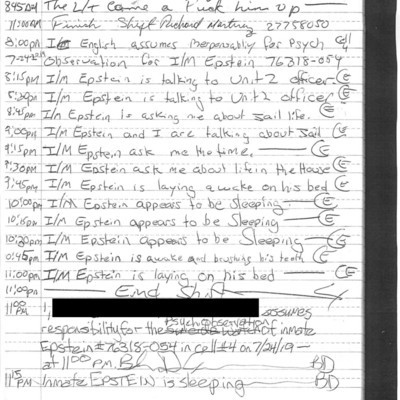 8:45AM The L/T came a pick him up
11:00AM Finish Shift Richard 27758050
8:00pm I/m English assumes responsably for Psych Cell 4
7-24 Observation for I/M Epstein 76318-054
8:15pm I/M Epstein is talking to Unit 2 officer CE
8:30pm I/M Epstein is talking to Unit 2 officer CE
8:45pm I/m Epstein is asking me about Jail life. CE
9:00pm I/M Epstein and I are talking about Jail CE
9:15pm I/M Epstein ask me the time. CE
9:30pm I/M Epstein ask me about life in the House CE
9:45pm I/M Epstein is laying awake on his bed CE
10:00pm I/M Epstein appears to be sleeping CE
10:15pm I/M Epstein appears to be Sleeping CE
10:30pm I/M Epstein appears to be Sleeping CE
10:45pm I/M Epstein is awake and brushing his teeth CE
11:00pm I/M Epstein is laying on his bed CE
11:00pm End Shift
11:00 PM I, assumes
responsibility for the Psych observation of inmate
Epstein #76318-054 in cell #4 on 7/24/19
at 11:00 P.M. BD
11:15 PM Inmate EPSTEIN is sleeping BD